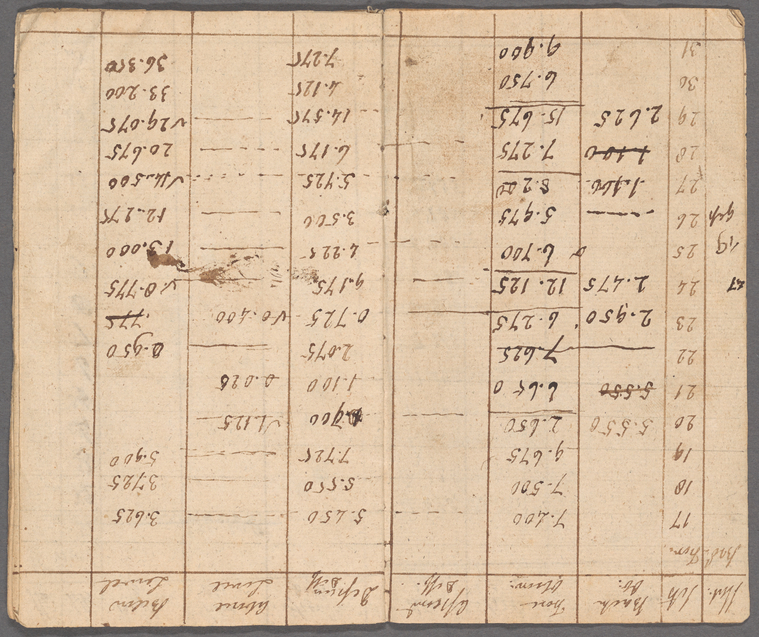 Stat. Back do. Fore observ. Ascent Diff. Depression Diff. Above Level Below Level
17 7.400 5.450 3.625
18 7.500 5.550 3.725
19 9.675 7.725 5.900
20 5.550 2.650 0.700 √1.125
21 5.550 6.650 1.100 0.025
22 7.625 2.075 0.950
23 2.950 6.275 0.725 √0.400 .775
24 2.475 12.125 9.175 √8.775
25 6.700 4.225 13.000
26 5.975 3.500 12.275
27 1.400 8.200 5.725 √14.500
28 1.100 7.275 6.175 20.675
29 2.625 15.675 14.575 √29.075
30 6.750 4.125 33.200
31 9.900 7.275 36.350